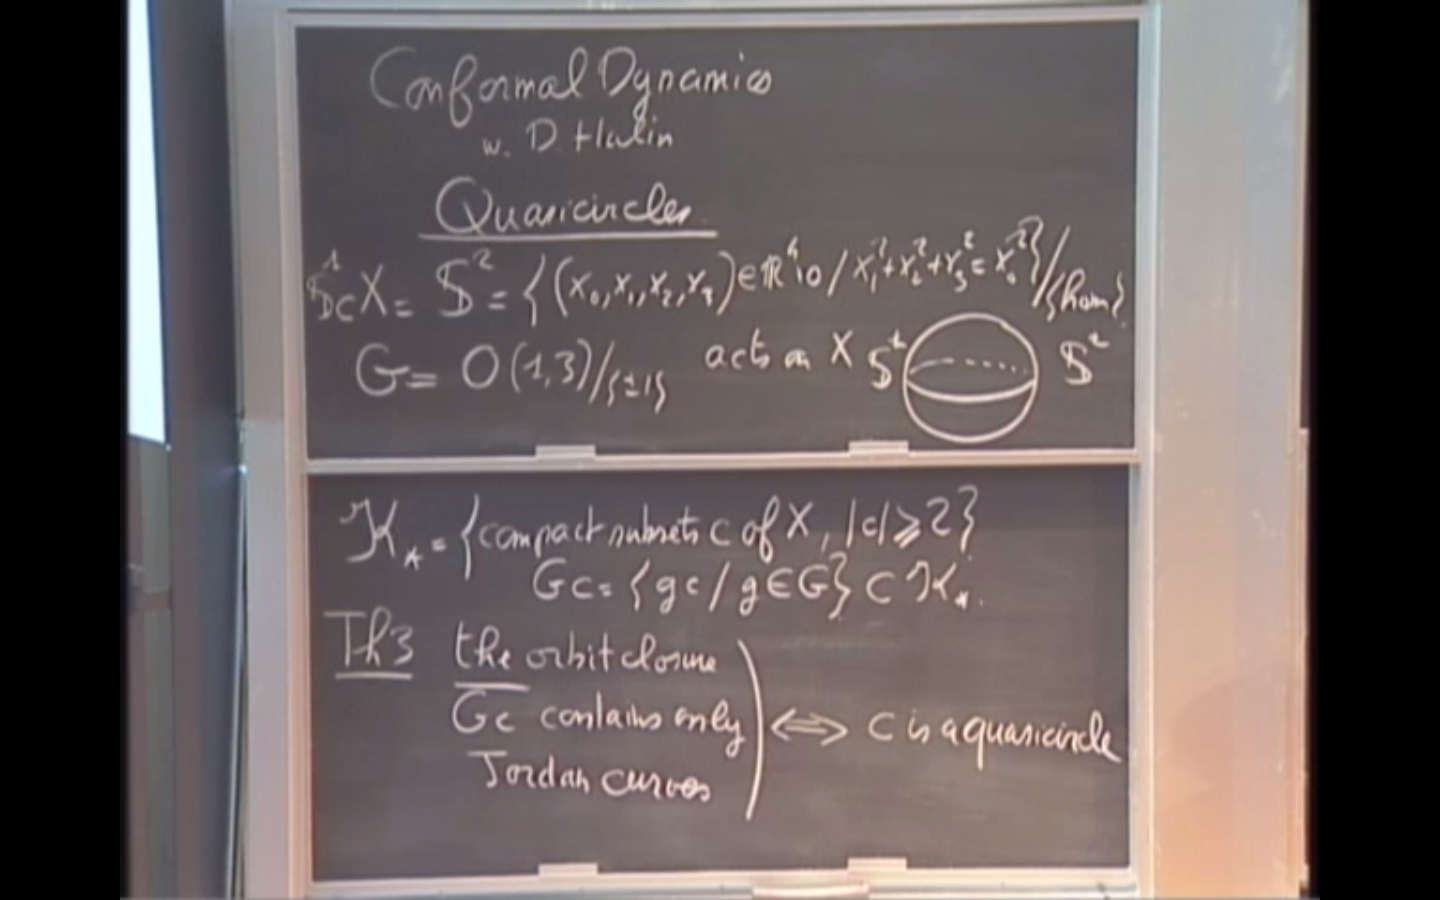 Conformal Dynamics
w. D. Hulin
Quasicircles
𝕊¹⊂X = 𝕊² = {(x₀,x₁,x₂,x₃)∈ℝ⁴\0 / x₁²+x₂²+x₃²=x₀²}/{hom}
G = O(1,3)/{±1} acts on X 𝕊¹ 𝕊²
𝒦⋆ = {compact subsets c of X, |c|⩾2}
Gc = {gc / g∈G} ⊂ 𝒦⋆.
Th3 the orbit closure
G̅c̅ contains only ⟺ c is a quasicircle
Jordan curves